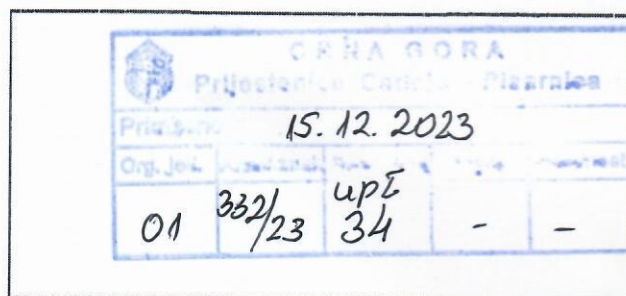 CRNA GORA
Prijestonica Cetinje - Pisarnica
15. 12. 2023
Org. jed.
01 332/23 upI 34 - -